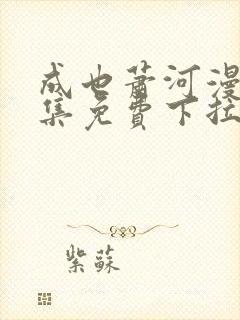 成也萧河漫
集免費下拉
紫蘇